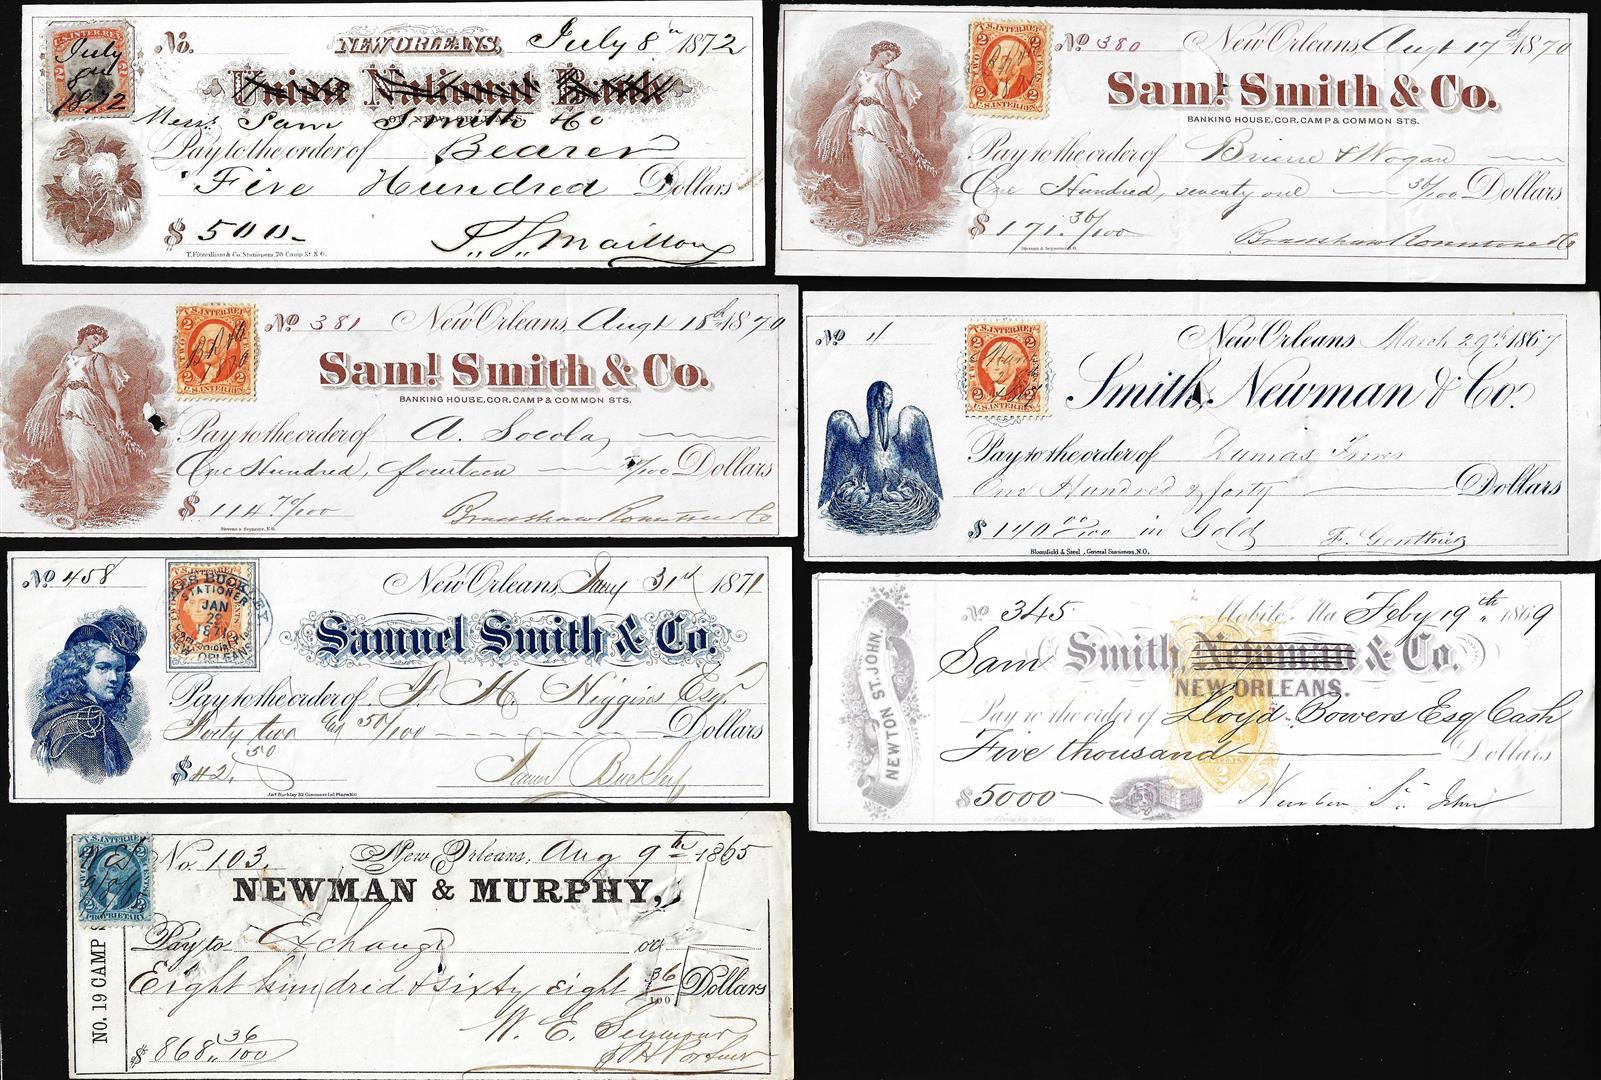 No. NEW ORLEANS, July 8th 1872
U.S. INTER. REV.
July
8th
1872
Union National Bank
OF NEW ORLEANS
Messrs Sam Smith & Co
Pay to the order of Bearer
Five Hundred Dollars
$ 500-
T. Fitzwilliam & Co. Stationers, 76 Camp St. N.O.
No 380 New Orleans, Augt 17th 1870
U.S. INTER. REV.
Saml. Smith & Co.
BANKING HOUSE, COR. CAMP & COMMON STS.
Pay to the order of Brierre & Wogan
One Hundred, seventy one 36/100 Dollars
$ 171.36/100
Bradshaw Rountree & Co
Stevens & Seymour, N.O.
No 381 New Orleans, Augt 18th 1870
U.S. INTER. REV.
Saml. Smith & Co.
BANKING HOUSE, COR. CAMP & COMMON STS.
Pay to the order of A. Socola
One Hundred, fourteen 70/100 Dollars
$ 114 70/100
Bradshaw Rountree & Co
Stevens & Seymour, N.O.
No New Orleans March 29th 1867
U.S. INTER. REV.
Smith, Newman & Co.
Pay to the order of Dumas Frères
One Hundred & forty Dollars
$ 140 00/100 in Gold
Bloomfield & Steel, General Stationers, N.O.
No 458 New Orleans, Jany 31st 1871
JAMES BUCKLEY
STATIONER
JAN
1871
NEW ORLEANS
Samuel Smith & Co.
Pay to the order of F. M. Niggins Esqr
Forty two 50/100 Dollars
$ 42.50
James Buckley
Jas Buckley 32 Commercial Place N.O.
NEWTON ST. JOHN.
No 345 Mobile, Ala. Feby 19th 1869
Sam Smith Newman & Co.
NEW ORLEANS.
Pay to the order of Lloyd Bowers Esq Cash
Five thousand Dollars
$ 5000-
Newton St. John
U.S. INTER. REV.
PROPRIETARY
No. 103. New Orleans, Aug 9th 1865
NEWMAN & MURPHY,
Pay to Exchange or
Eight hundred & sixty eight 36/100 Dollars
NO. 19 CAMP S
W. E. Seymour
$ 868,, 36/100